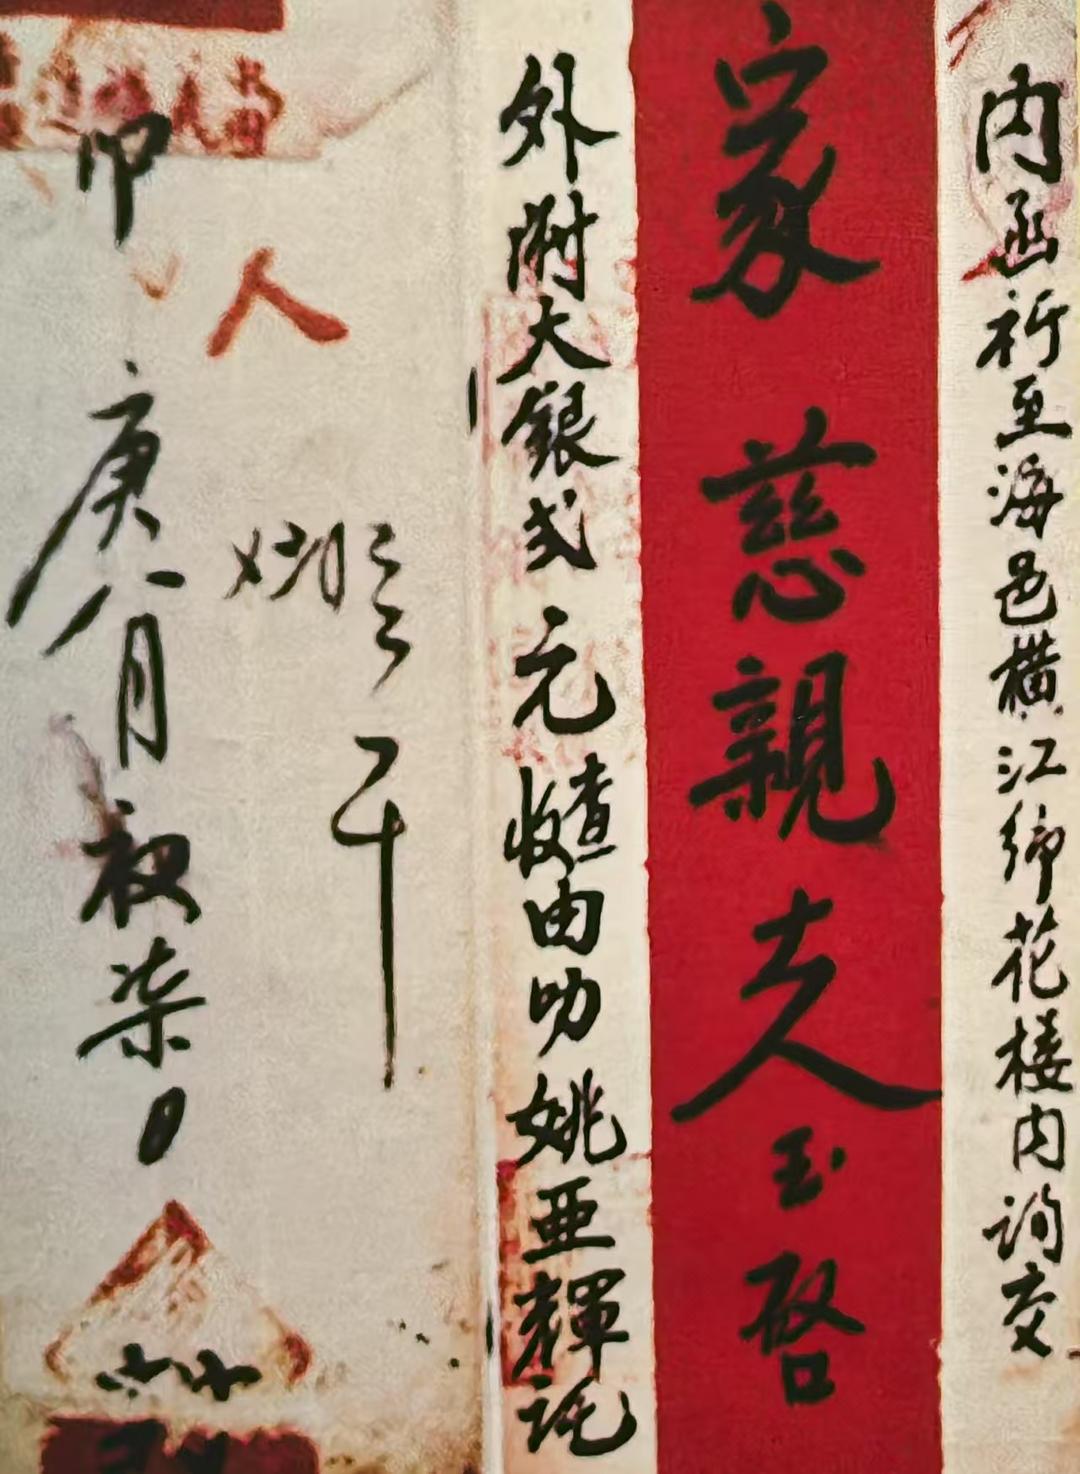 内函祈至海邑横江鄉花楼内詢交
家慈親大人玉啓
外附大銀弍元查收由叻姚亞輝託
人
叩
庚八月初柒日